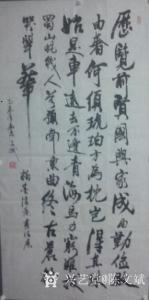 歷覽前賢國與家成由勤儉破
由奢何須琥珀方為枕豈得真
始是車運去不逢青海馬力窮難拔
蜀山蛇幾人曾預南薰曲終古蒼
哭翠華
兴艺堂@陈文斌